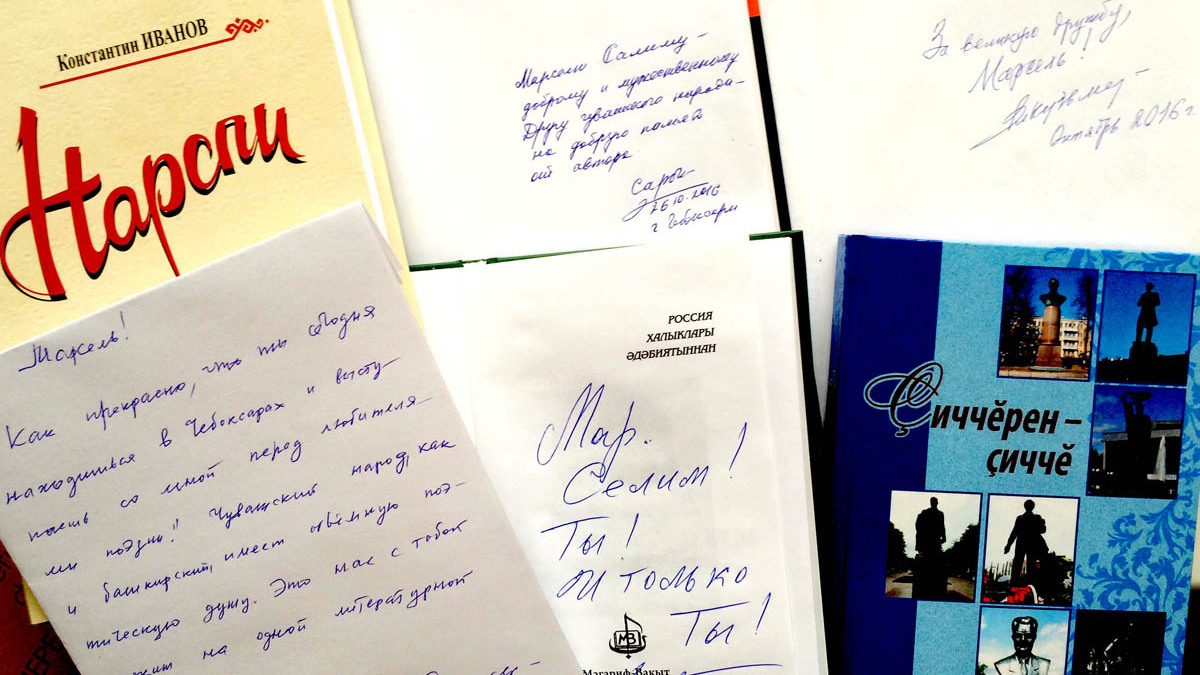 Константин ИВАНОВ
Нарспи
Марселю Салиму –
доброму и мужественному
Другу чувашского народа –
на добрую память
от автора
26.10.2016
г. Чебоксары
За великую дружбу,
Марсель!
Октябрь 2016 г.
Марсель!
Как прекрасно, что ты сегодня
находишься в Чебоксарах и высту-
паешь со мной перед любителя-
ми поэзии! Чувашский народ, как
и башкирский, имеет объёмную поэ-
тическую душу. Это нас с тобой
на одной литературной
РОССИЯ
ХАЛЫКЛАРЫ
ӘДӘБИЯТЫННАН
Мар.
Селим!
Ты!
И только
Ты!
МВ
Мәгариф-Вакыт
Ҫиччӗрен –
ҫиччӗ